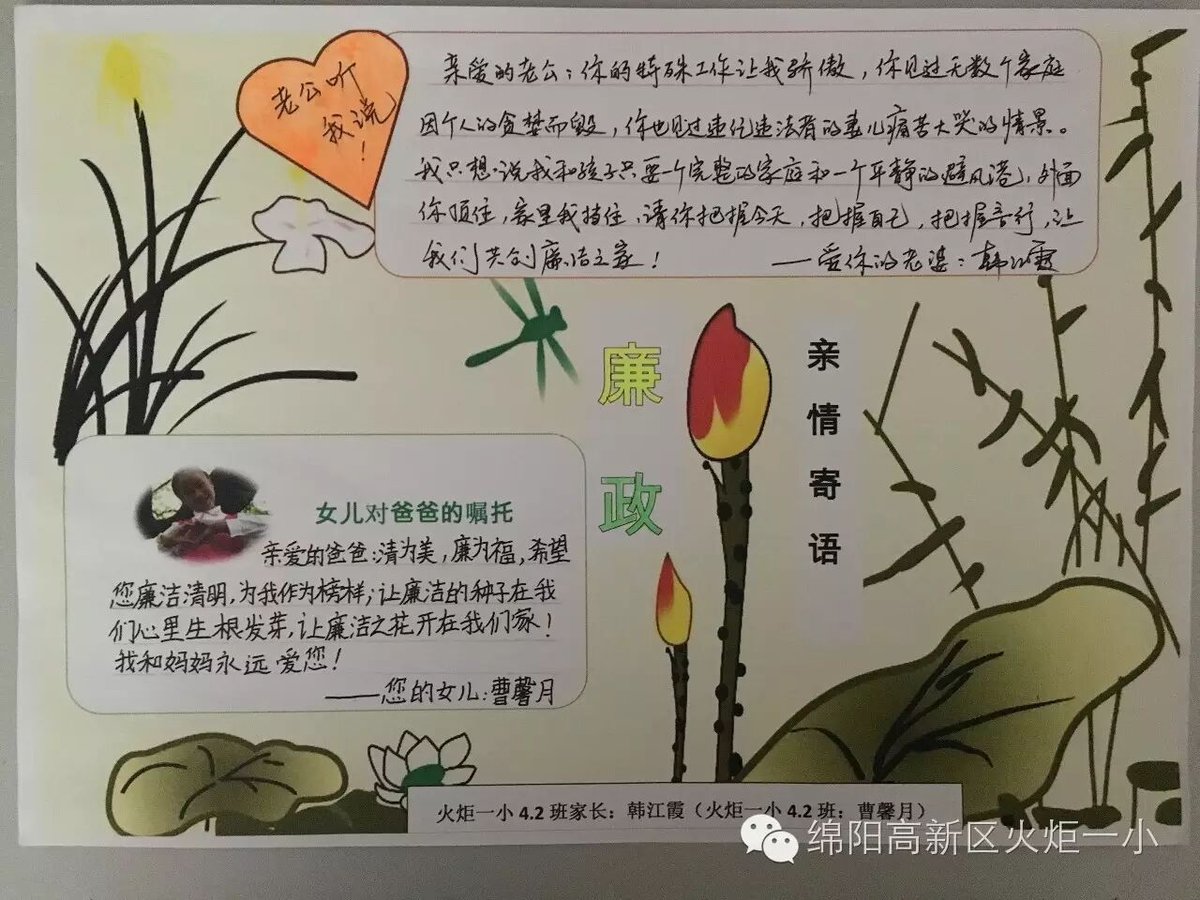 老公听
我说！
亲爱的老公：你的特殊工作让我骄傲，你见过无数个家庭
因个人的贪婪而毁，你也见过违纪违法者的妻儿痛苦大哭的情景。
我只想说我和孩子只要一个完整的家庭和一个平静的避风港，外面
你顶住，家里我挡住，请你把握今天，把握自己，把握言行，让
我们共创廉洁之家！
——爱你的老婆：韩江霞
廉政
亲情寄语
女儿对爸爸的嘱托
亲爱的爸爸：清为美，廉为福，希望
您廉洁清明，为我作为榜样；让廉洁的种子在我
们心里生根发芽，让廉洁之花开在我们家！
我和妈妈永远爱您！
——您的女儿：曹馨月
火炬一小4.2班家长：韩江霞（火炬一小4.2班：曹馨月）
绵阳高新区火炬一小